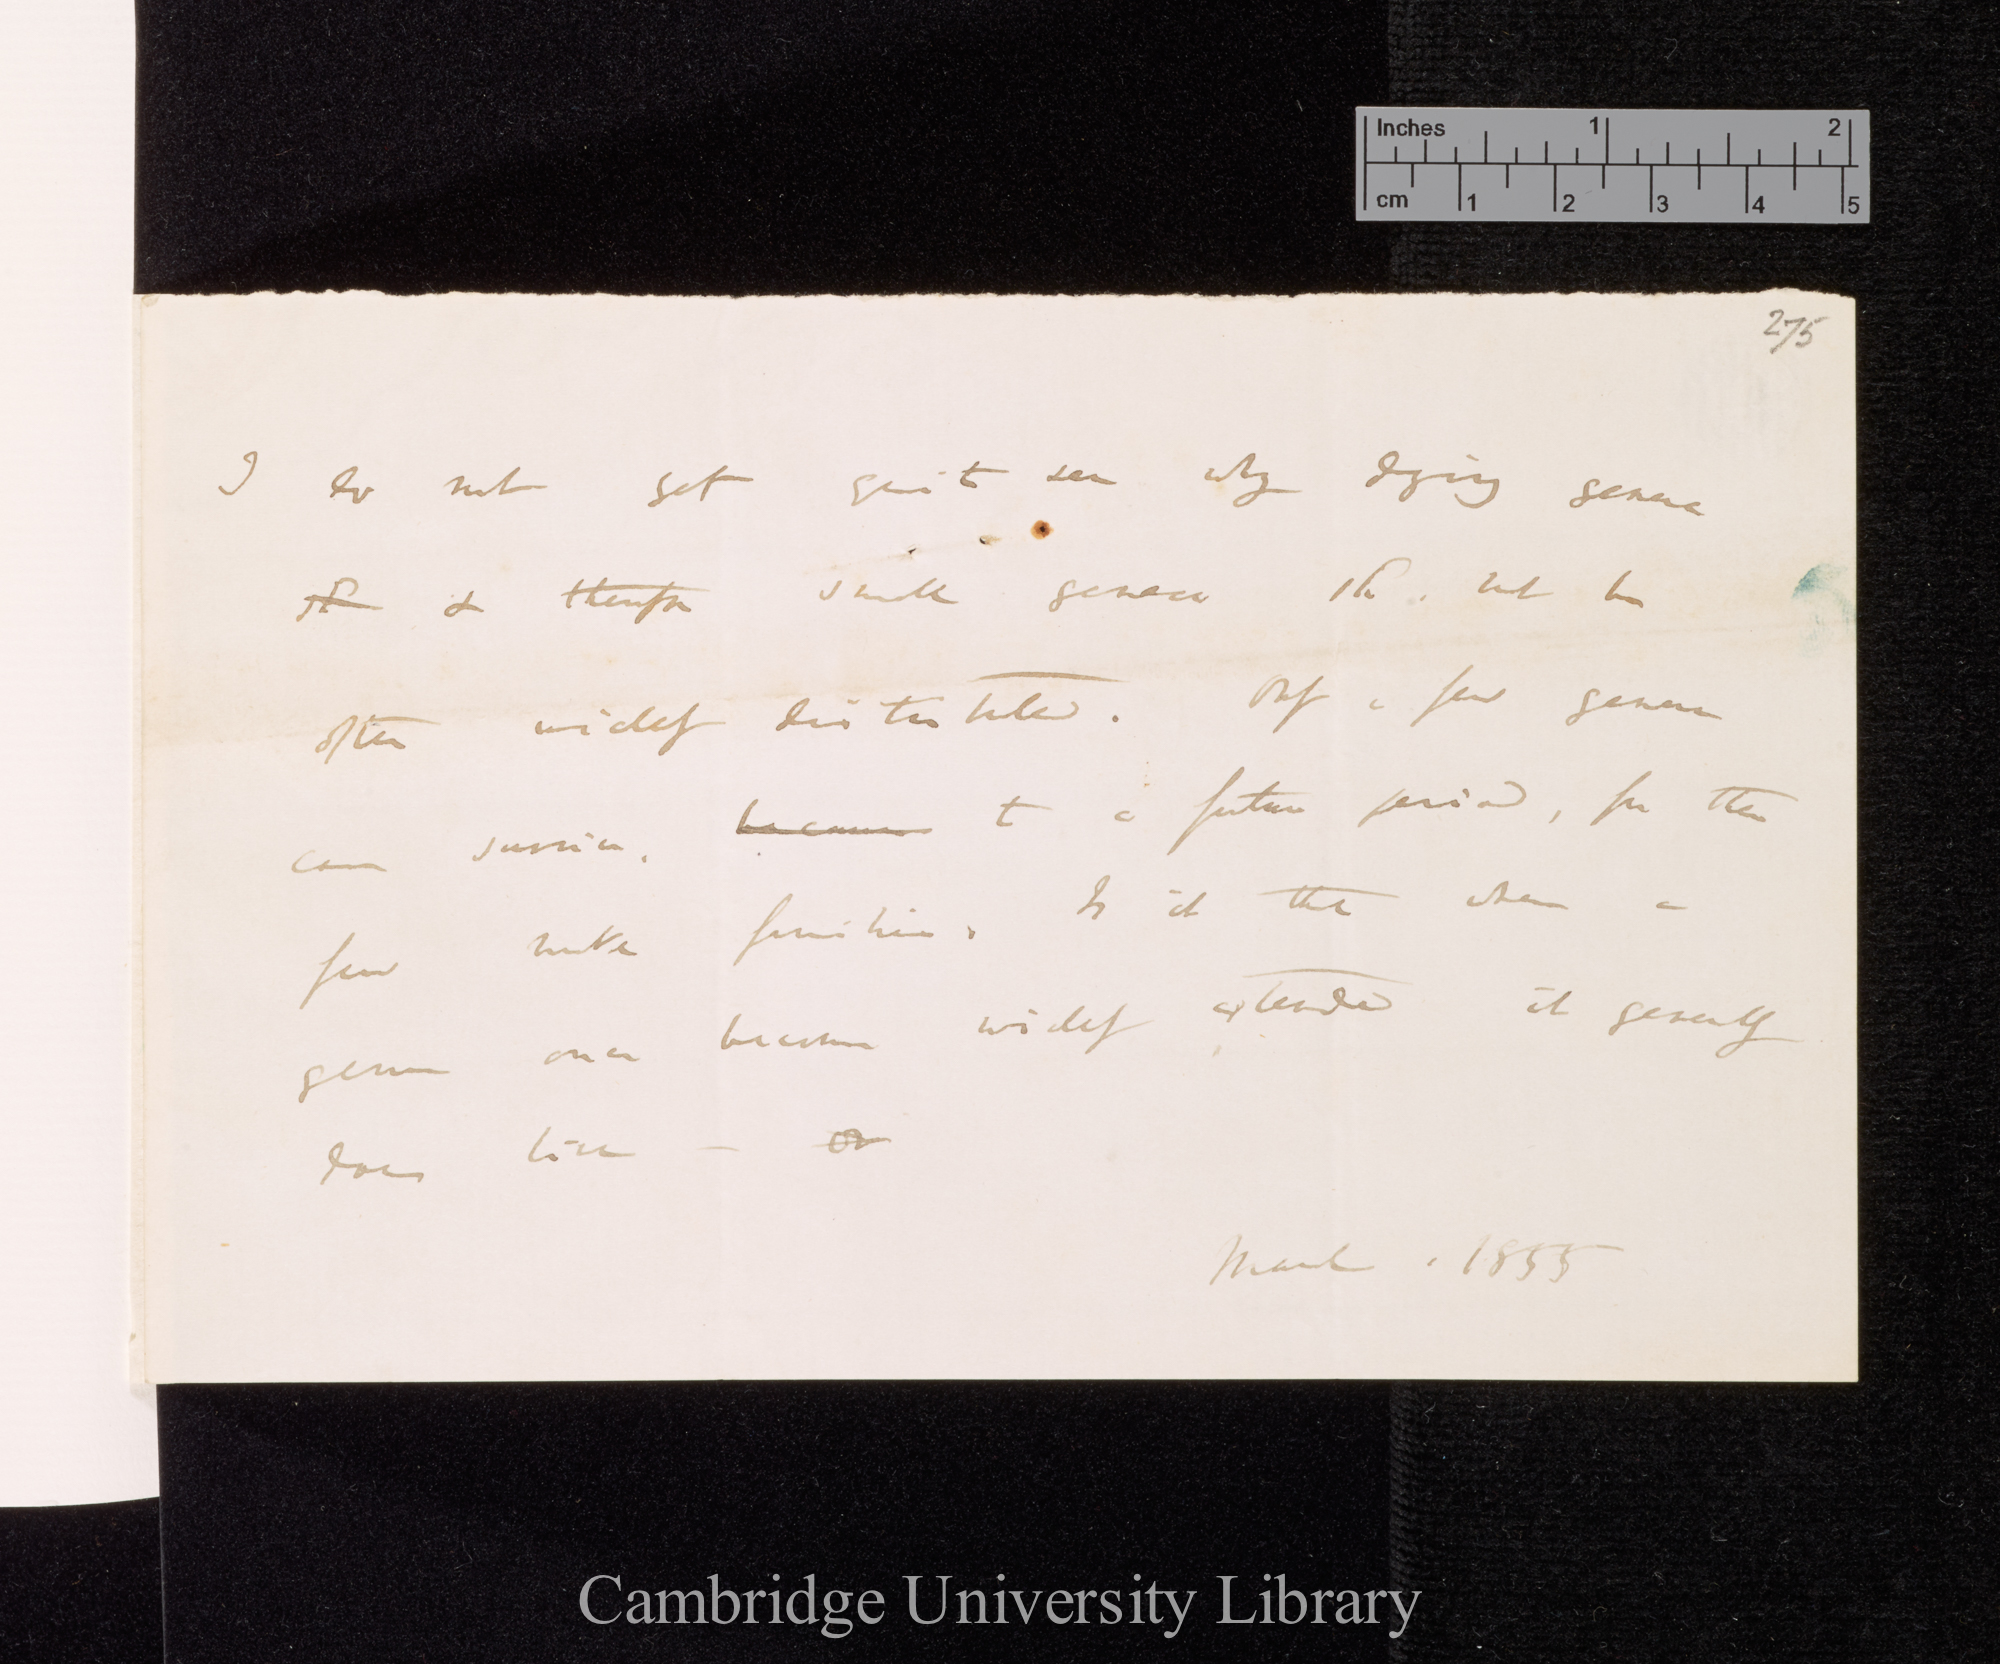 Inches 1 2
cm 1 2 3 4 5
275
I do not yet quite see why dying genera
& therefore small genera shd. not be
often widely distributed. Only a few genera
can survive. because to a future period, for then
few make families. Is it that when a
genus once become widely extended it generally
does live — or
March. 1855
Cambridge University Library